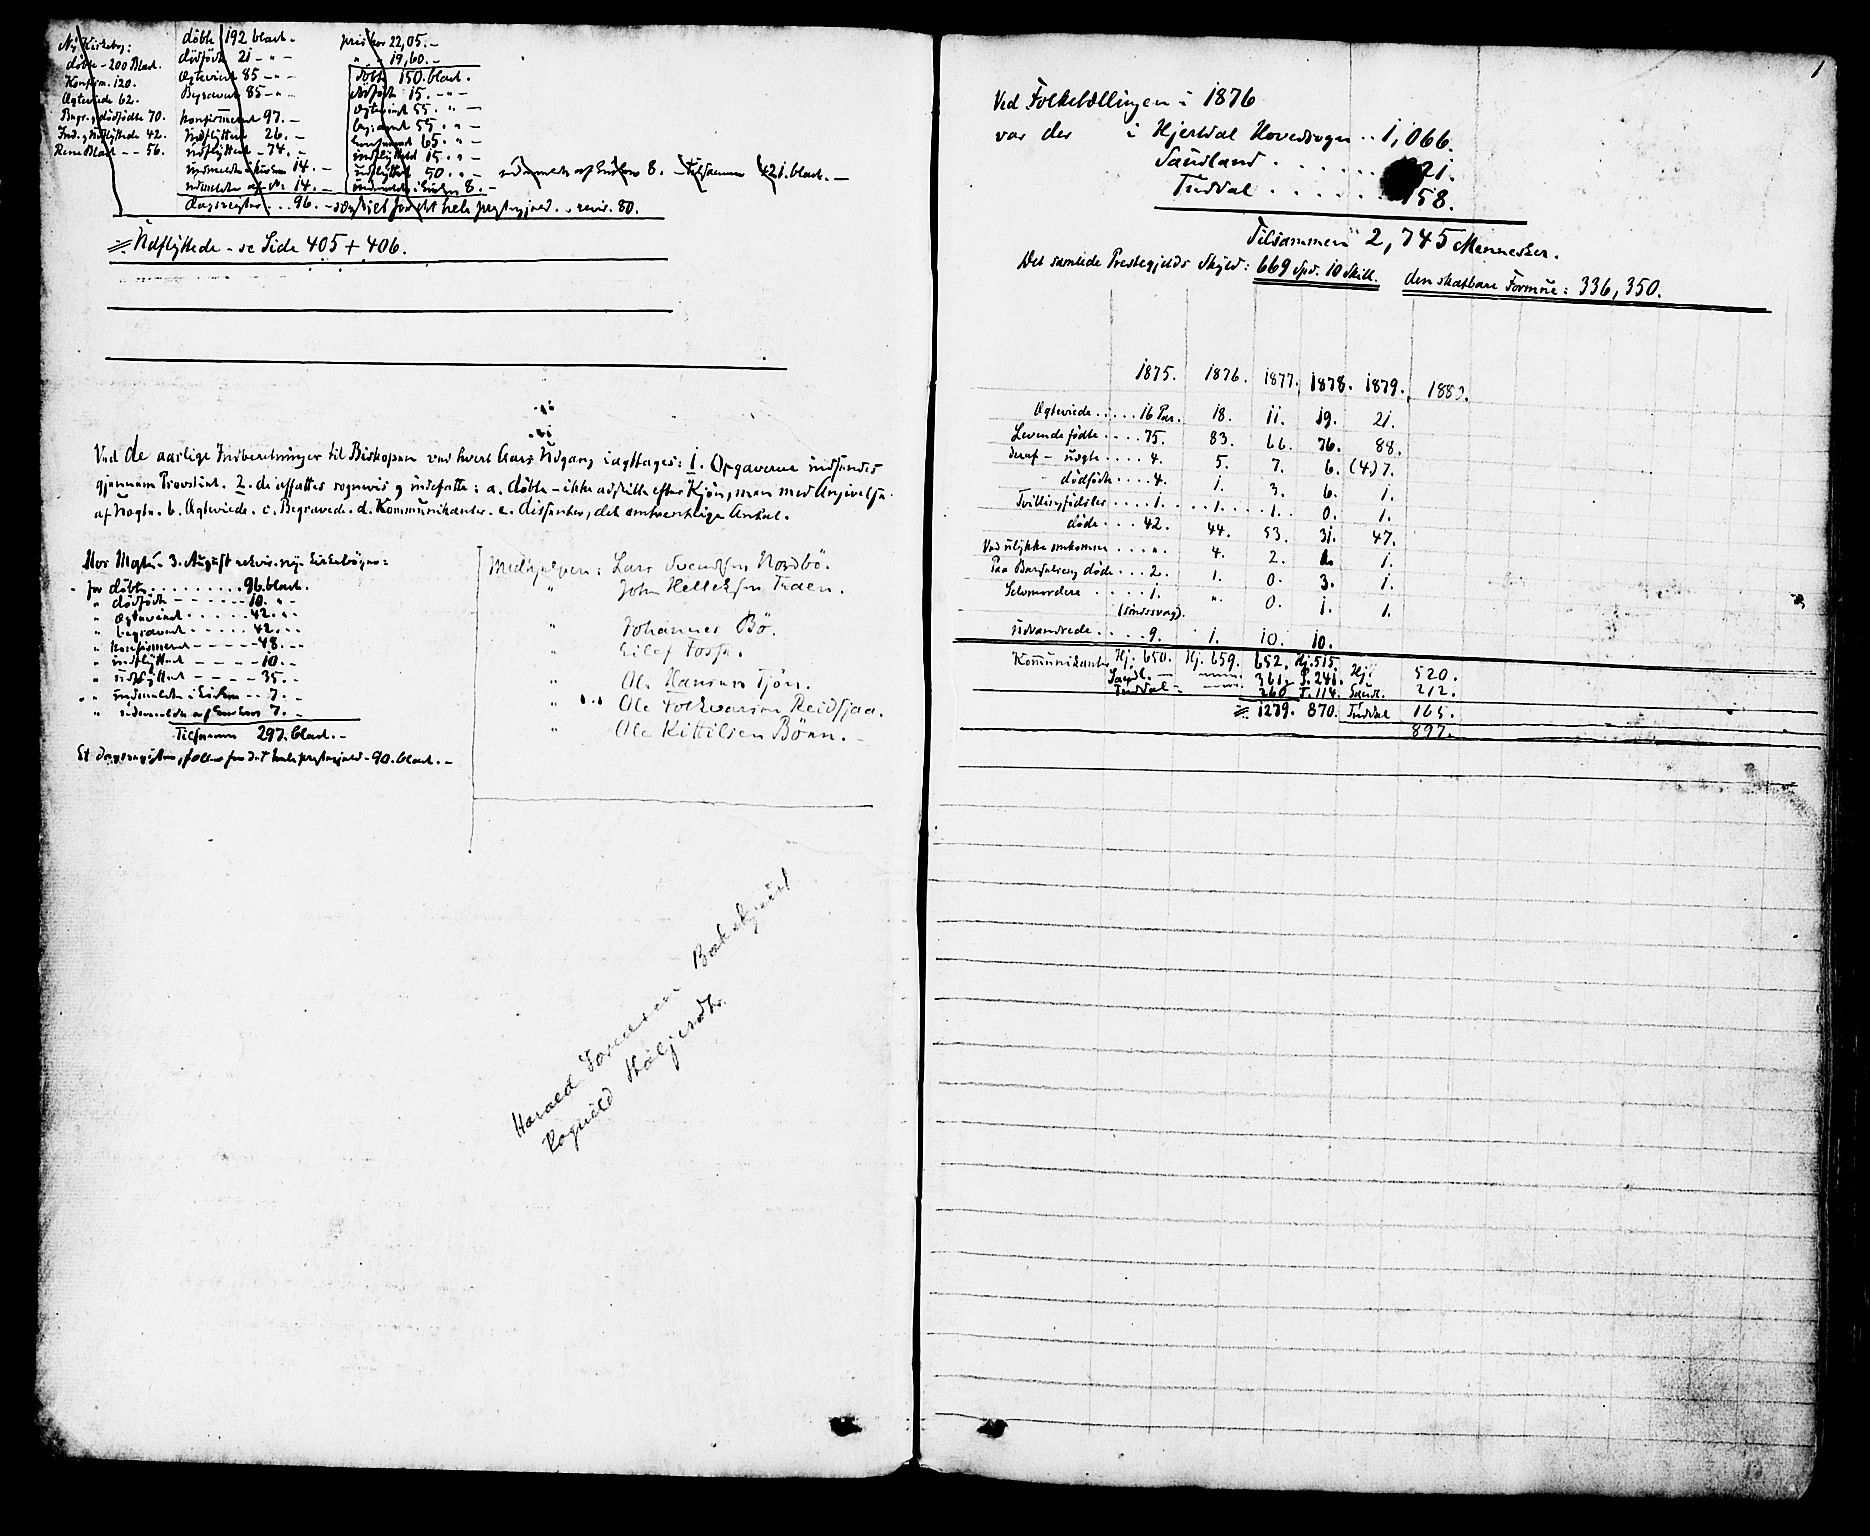 Ny Kirkebog:
døbte - 200 Blad.
Konfirm. 120.
Ægteviede 62.
Begr. og dødfødte 70.
Ind. og Udflyttede 42.
Rene Blad - - 56.
døbte 192 blad -
dødfødte 21 - " -
Ægteviede 85 - " -
Begravede 85 - " -
konfirmerede 97. -
indflyttede 26. -
udflyttede - 74. -
indmeldte i Kirken 14. -
udmeldte af do 14. -
dagregister . . . 96. -
pris kor 22,05. -
" - 19,60. -
døbte 150. blad.
dødfødte 15. - " -
ægteviede 55. " -
begravede 55. " -
konfirmerede 65. " -
indflyttede 15. " -
udflyttede 50. " -
indmeldte i Kirken 8. -
udmeldte af Kirken 8. - Tilsammen 421. blad. -
Udflyttede - se Side 405 + 406.
Ved de aarlige Indberetninger til Biskopen ved hvert Aars Udgang iagttages: 1. Opgaverne indsendes
gjennem Provstiet. 2. de affattes sognevis og indefatte: a. døbte - ikke adskilte efter Kjøn, men med Angivelse
af Uægte. b. Ægteviede. c. Begravede. d. Kommunikanter. e. dissenter, det omtrentlige Antal.
3. August
for døbte . . . . . . . . . 96. blad.
" dødfødte - - - - - - 10. " -
" ægteviede - - - - - 42. " -
" begravede - - - - - 42. " -
" konfirmerede - - - - 48. " -
" indflyttede - - - - 10. " -
" udflyttede - - - - - 35. " -
" indmeldte i Kirken - - 7. " -
" udmeldte af Kirken 7. -
Tilsammen 297. blad. -
Et dagregister, fælles for det hele prestegjeld - 90. blad. -
Medhjælpere: Lars Svendsen Nordbö.
" John Helleksen
" Johannes Bö.
" Eilef Fosse.
" Ole Hansen Tjön.
" Ole Folkvarson Reidsjaa.
" Ole Kittilsen Bönn. -
Harald Bakskjeret
Rognild
1
Ved Folketællingen i 1876
var der i Hjertdal Hovedsogn . . 1,066.
Saudland . . . . . . 21.
Tuddal . . . . . 158.
Tilsammen 2,745 Mennesker.
Det samlede Prestegjelds Skyld: 669 Spd. 10 Skill. den skatbare Formue: 336,350.
1875. 1876. 1877. 1878. 1879. 1880.
Ægteviede . . . . . 16 Par. 18. 11. 19. 21.
Levende fødte . . . . 75. 83. 66. 76. 88.
deraf - uægte . . . . 4. 5. 7. 6. (4) 7.
dødfødte . . . . 4. 1. 3. 6. 1.
Tvillingfødsler . . . . 1. . . . . . 1. . . . . 1. 0. 1.
døde . . . . 42. 44. 53. 31. 47.
Ved ulykke omkomne . . . . ". 4. 2. 1. 1.
Paa Barselseng døde . . . 2. 1. 0. 3. 1.
Selvmordere . . . . . 1. ". 0. 1. 1.
(sindssvag).
udvandrede . . . . 9. 1. 10. 10.
Kommunikanter Hj. 650. Hj. 659. 652. Hj. 515. Hj. 520.
Saudl. - 361. S. 241. Saudl. 212.
Tuddal - 266 T. 114. Tuddal 165.
1279. 870. 897.